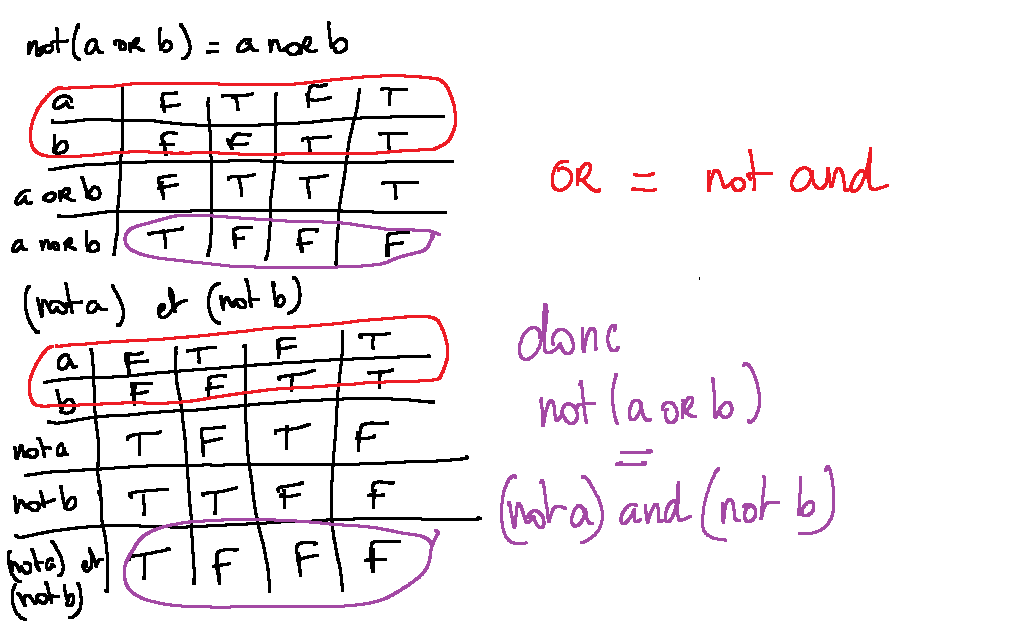 not(a OR b) = a nor b
a F T F T
b F F T T
a OR b F T T T
a nor b T F F F
(not a) et (not b)
a F T F T
b F F T T
not a T F T F
not b T T F F
(not a) et
(not b) T F F F
OR = not and
donc
not (a OR b)
=
(not a) and (not b)